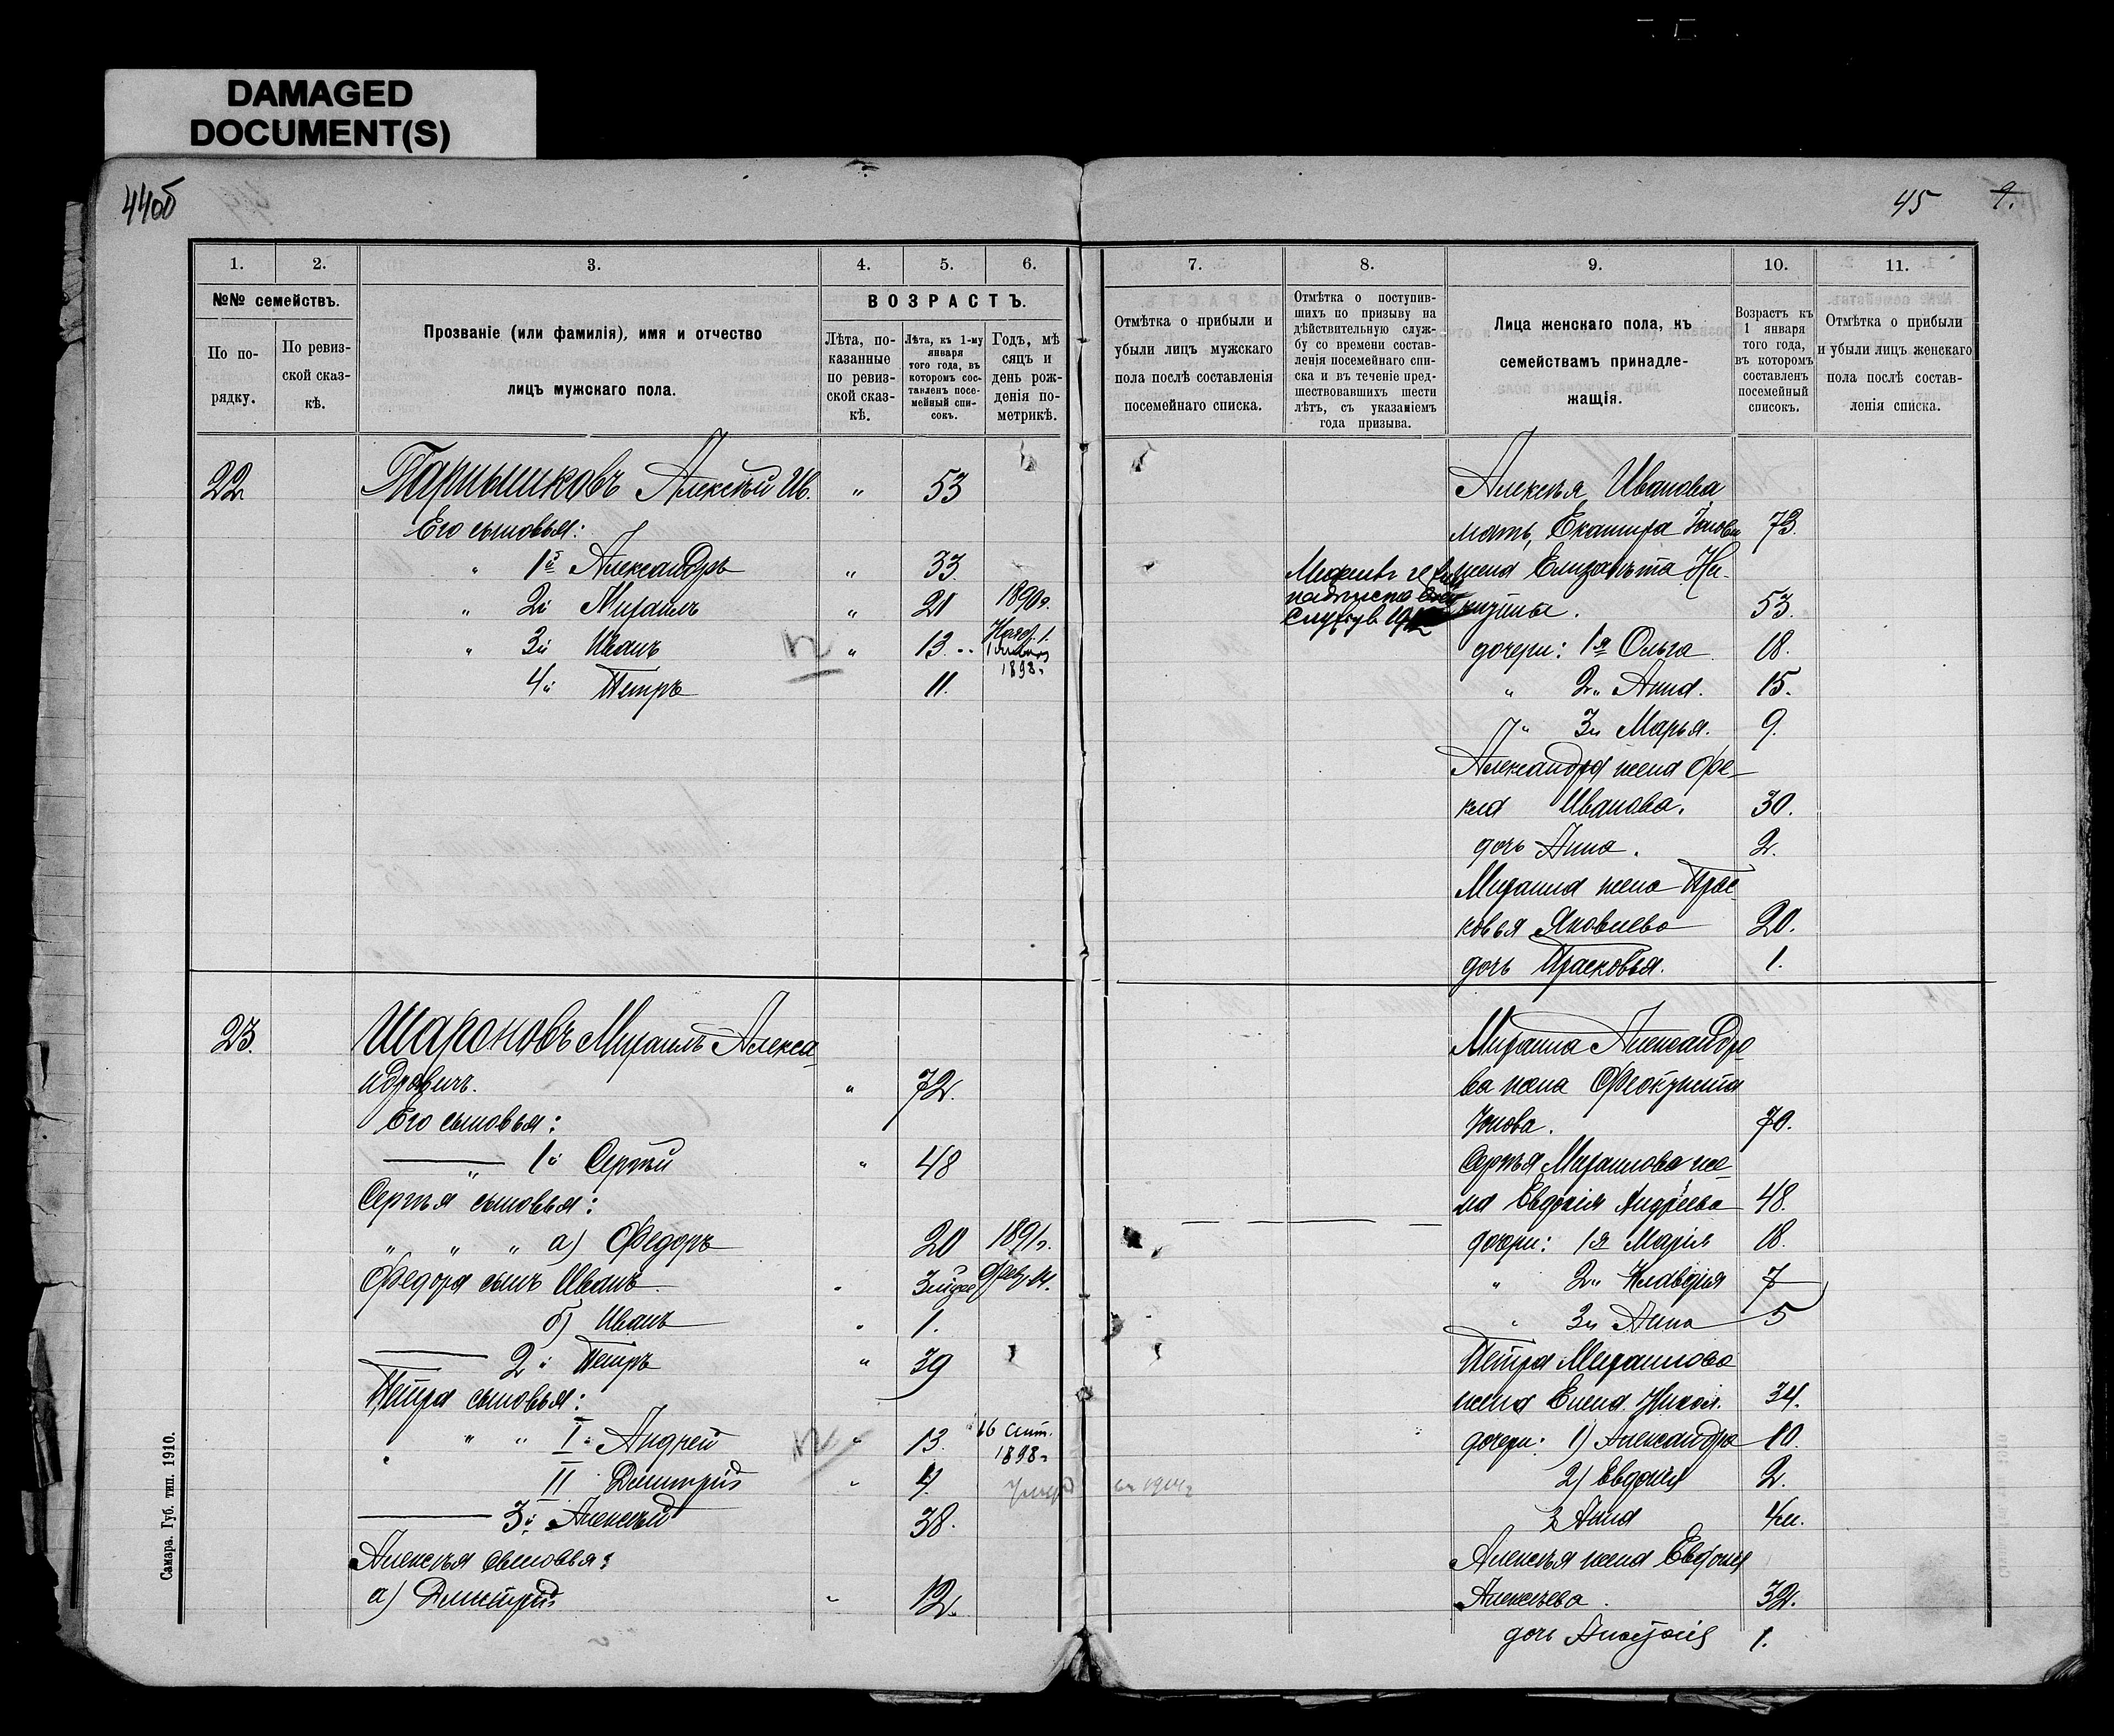 DAMAGED
DOCUMENT(S)
44об
45
1.
2.
3.
4.
5.
6.
№№ семействъ.
По по-
рядку.
По ревиз-
ской сказ-
кѣ.
Прозваніе (или фамилія), имя и отчество
лицъ мужскаго пола.
ВОЗРАСТЪ.
Лѣта, по-
казанные
по ревиз-
ской сказ-
кѣ.
Лѣта, къ 1-му
января
того года, въ
которомъ сос-
тавленъ посе-
мейный спи-
сокъ.
Годъ, мѣ
сяцъ и
день рож-
денія по-
метрикѣ.
22 Алексѣй Ив. " 53
Его сыновья:
" 1й Александръ " 33
" 2й Михаилъ " 21 1890г.
" 3й Иванъ " 13
1898г.
4й Петръ 11.
23. Шароновъ Михаилъ Алекса
ндровичъ. " 72.
Его сыновья:
" 1й Сергѣй " 48
Сергѣя сыновья:
" " " а) Федоръ 20 1891г.
Федора сынъ Иванъ
б) Иванъ 1.
2й Петръ " 39
Петра сыновья:
" " I Андрей 13. 16 сент.
1898г
II Дмитрій 4.
3й Алексѣй 38.
Алексѣя сыновья:
а) Дмитрій 12.
Самара. Губ. тип. 1910.
7.
8.
9.
10.
11.
Отмѣтка о прибыли и
убыли лицъ мужскаго
пола послѣ составленія
посемейнаго списка.
Отмѣтка о поступив-
шихъ по призыву на
дѣйствительную служ-
бу со времени состав-
ленія посемейнаго спи-
ска и въ теченіе пред-
шествовавшихъ шести
лѣтъ, съ указаніемъ
года призыва.
Лица женскаго пола, къ
семействамъ принадле-
жащія.
Возрастъ къ
1 января
того года,
въ которомъ
составленъ
посемейный
списокъ.
Отмѣтка о прибыли
и убыли лицъ женскаго
пола послѣ состав-
ленія списка.
Алексѣя Иванова
мать, 73.
жена Елизавѣта Ни-
53.
дочери: 1я Ольга 18.
" 2я Анна. 15.
" 3я Марья. 9.
Александра жена Фе-
кла Иванова. 30.
дочь Анна. 2.
Михаила жена Прас
ковья Яковлева 20.
дочь Прасковья. 1.
Михаила Александро
ва жена
70.
Сергѣя Михайлова же
на Евдокія Андреева 48.
дочери: 1я Марія 18.
" 2я Клавдія 7
" 3я Анна 5
Петра Михайлова
жена Елена Никол. 34.
дочери: 1) Александра 10.
2) Евдокія 2.
3 Анна
въ 1914г
Алексѣя жена Евдокія
Алексѣева. 32.
дочь 1.